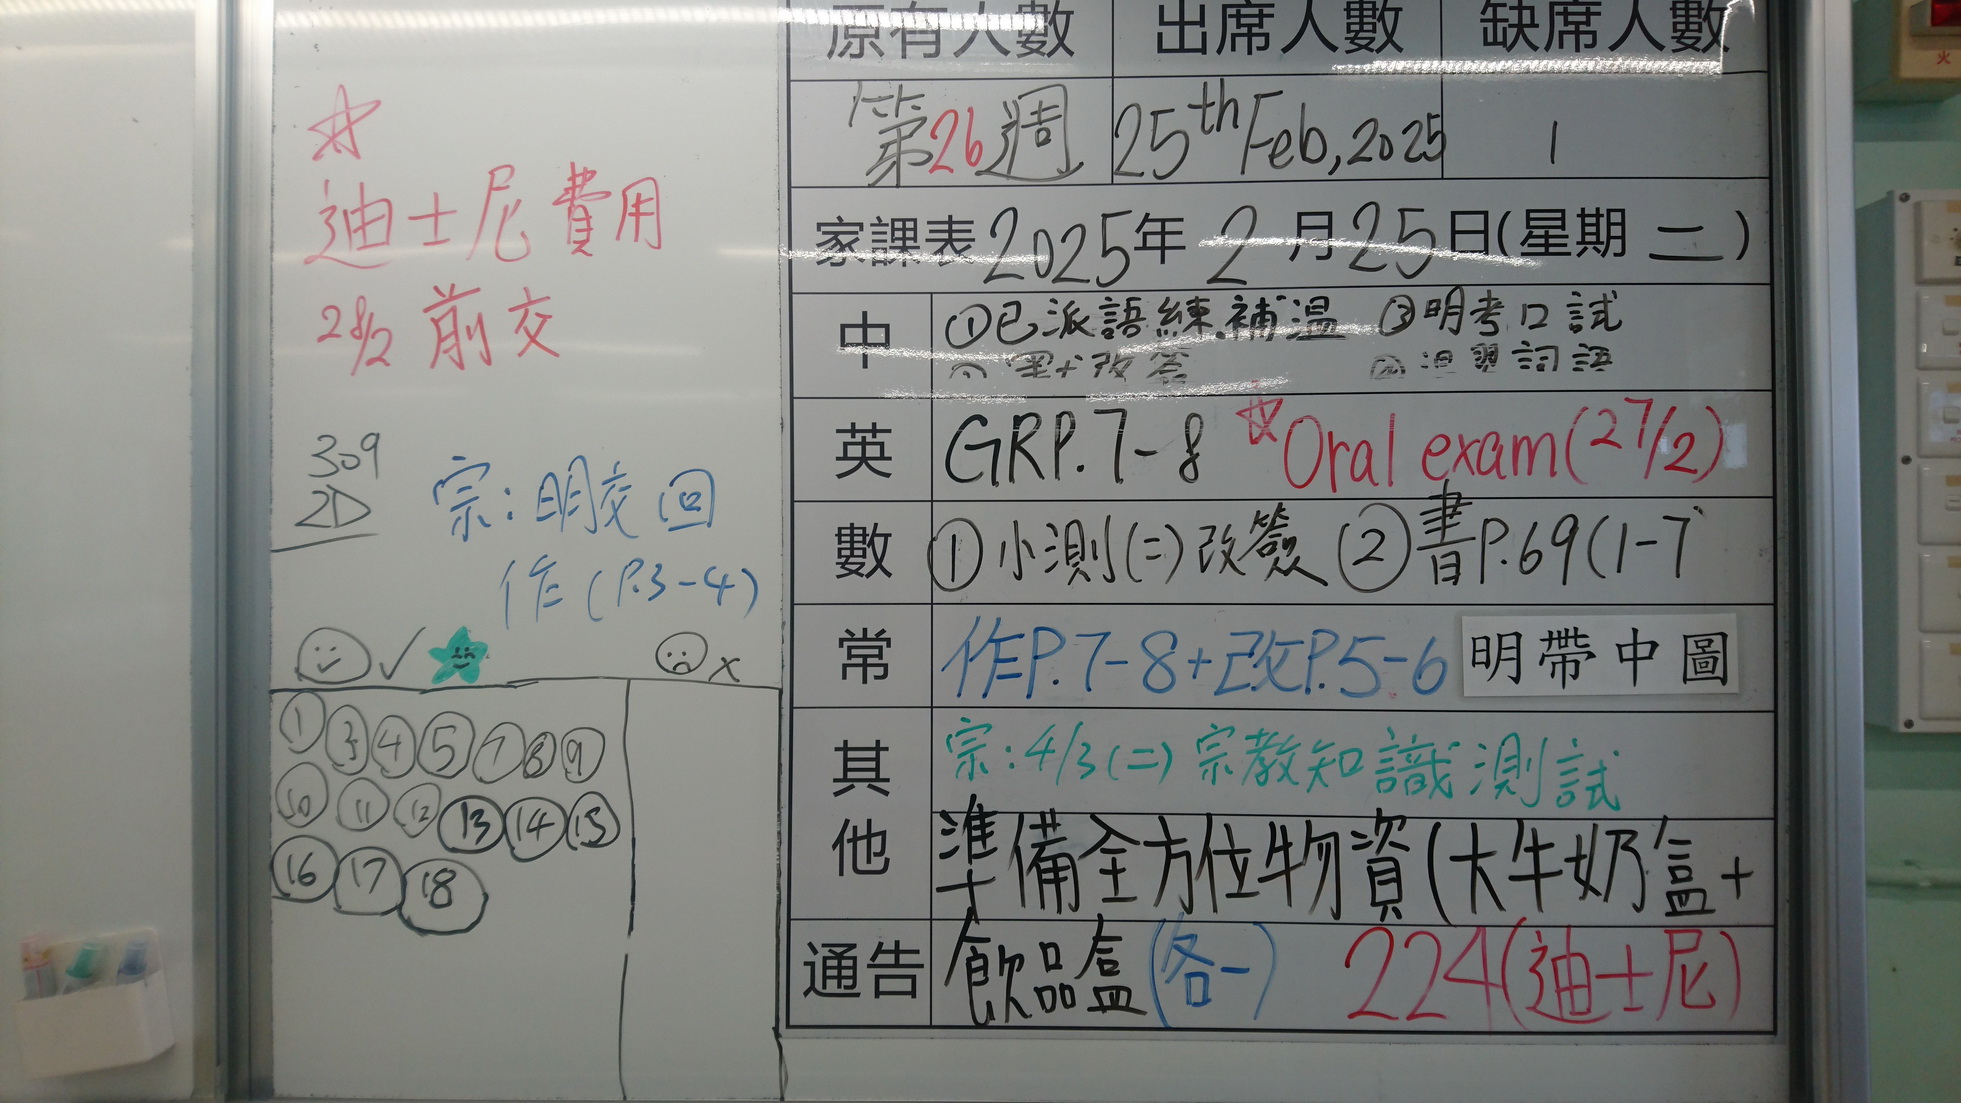 迪士尼費用
28/2 前交
309
2D
宗:明交回
作(P.3-4)
✓ x
① ③ ④ ⑤ ⑦ ⑧ ⑨
⑩ ⑪ ⑫ ⑬ ⑭ ⑮
⑯ ⑰ ⑱
原有人數 出席人數 缺席人數
第26週 25th Feb,2025 1
家課表2025年2月25日(星期二)
中 ①已派語練補温 ③明考口試
改簽 ②温習詞語
英 GRP.7-8 ☆Oral exam(27/2)
數 ①小測(二)改簽 ②書P.69(1-7
常 作P.7-8+改P.5-6 明帶中圖
其他 宗:4/3(二)宗教知識測試
準備全方位物資(大牛奶盒+
通告 飲品盒(各一) 224(迪士尼)
火